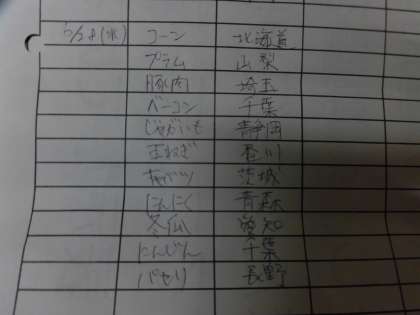 5/28(水) コーン 北海道
プラム 山梨
豚肉 埼玉
ベーコン 千葉
じゃがいも 静岡
玉ねぎ 香川
キャベツ 茨城
にんにく 青森
冬瓜 愛知
にんじん 千葉
パセリ 長野